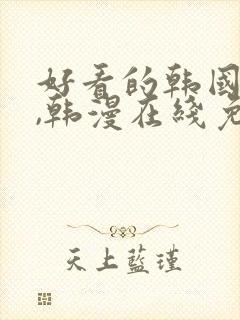 好看的韩国
,韩漫在线免
天上蓝瑾